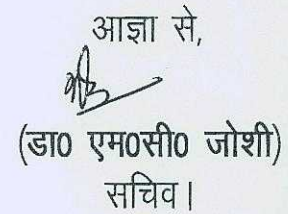 आज्ञा से,
(डा0 एम0सी0 जोशी)
सचिव।